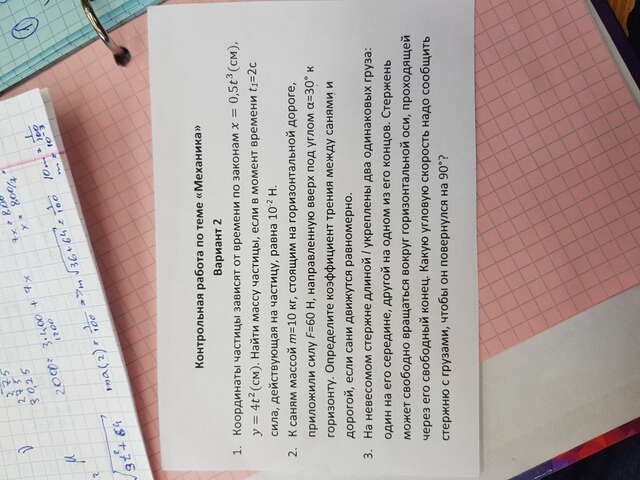 Контрольная работа по теме «Механика»
Вариант 2
1. Координаты частицы зависят от времени по законам x = 0,5t³(см),
y = 4t²(см). Найти массу частицы, если в момент времени t₁=2с
сила, действующая на частицу, равна 10⁻² Н.
2. К саням массой m=10 кг, стоящим на горизонтальной дороге,
приложили силу F=60 Н, направленную вверх под углом α=30° к
горизонту. Определите коэффициент трения между санями и
дорогой, если сани движутся равномерно.
3. На невесомом стержне длиной l укреплены два одинаковых груза:
один на его середине, другой на одном из его концов. Стержень
может свободно вращаться вокруг горизонтальной оси, проходящей
через его свободный конец. Какую угловую скорость надо сообщить
стержню с грузами, чтобы он повернулся на 90°?